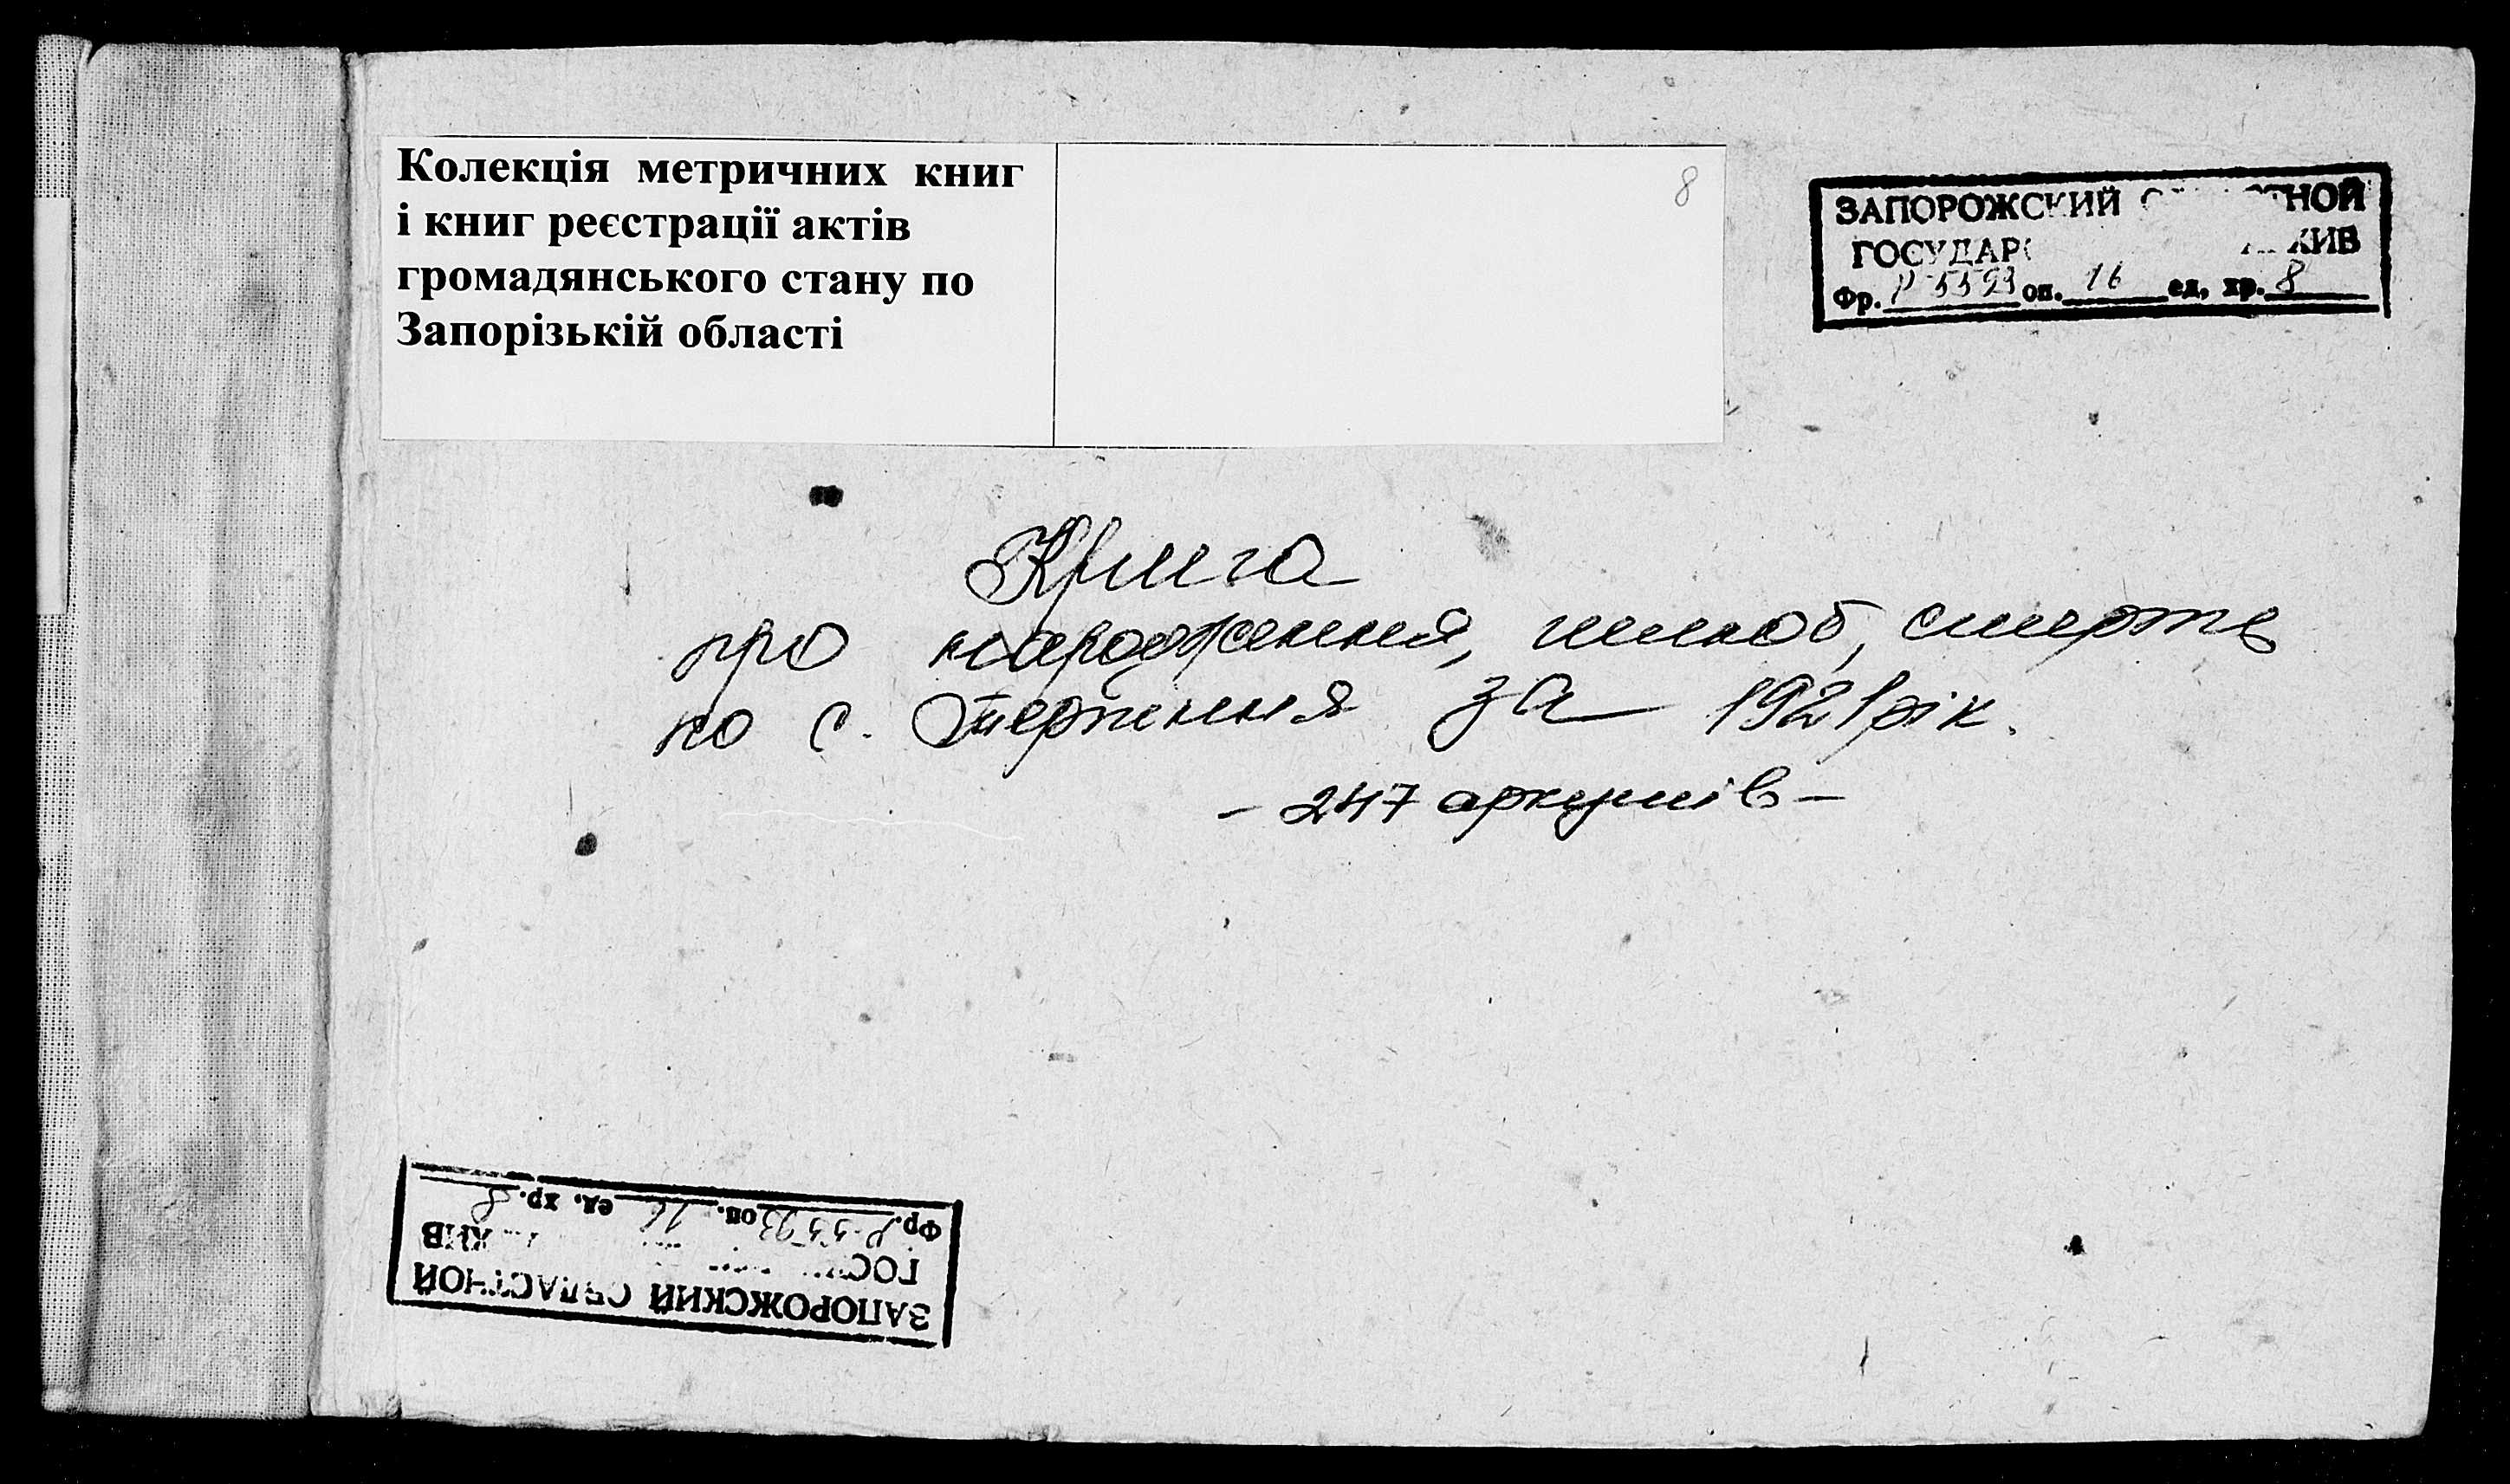 Колекція метричних книг
і книг реєстрації актів
громадянського стану по
Запорізькій області
8
ЗАПОРОЖСКИЙ
ГОСУДАР
Фр. Р-5593 оп. 16 ед. хр. 8
Книга
про народження, шлюб, смерть
по с. Терпіння за 1921 рік.
- 247 аркушів -
ЗАПОРОЖСКИЙ ОБЛАСТНОЙ
Фр. Р-5593 оп. 16 ед. хр. 8